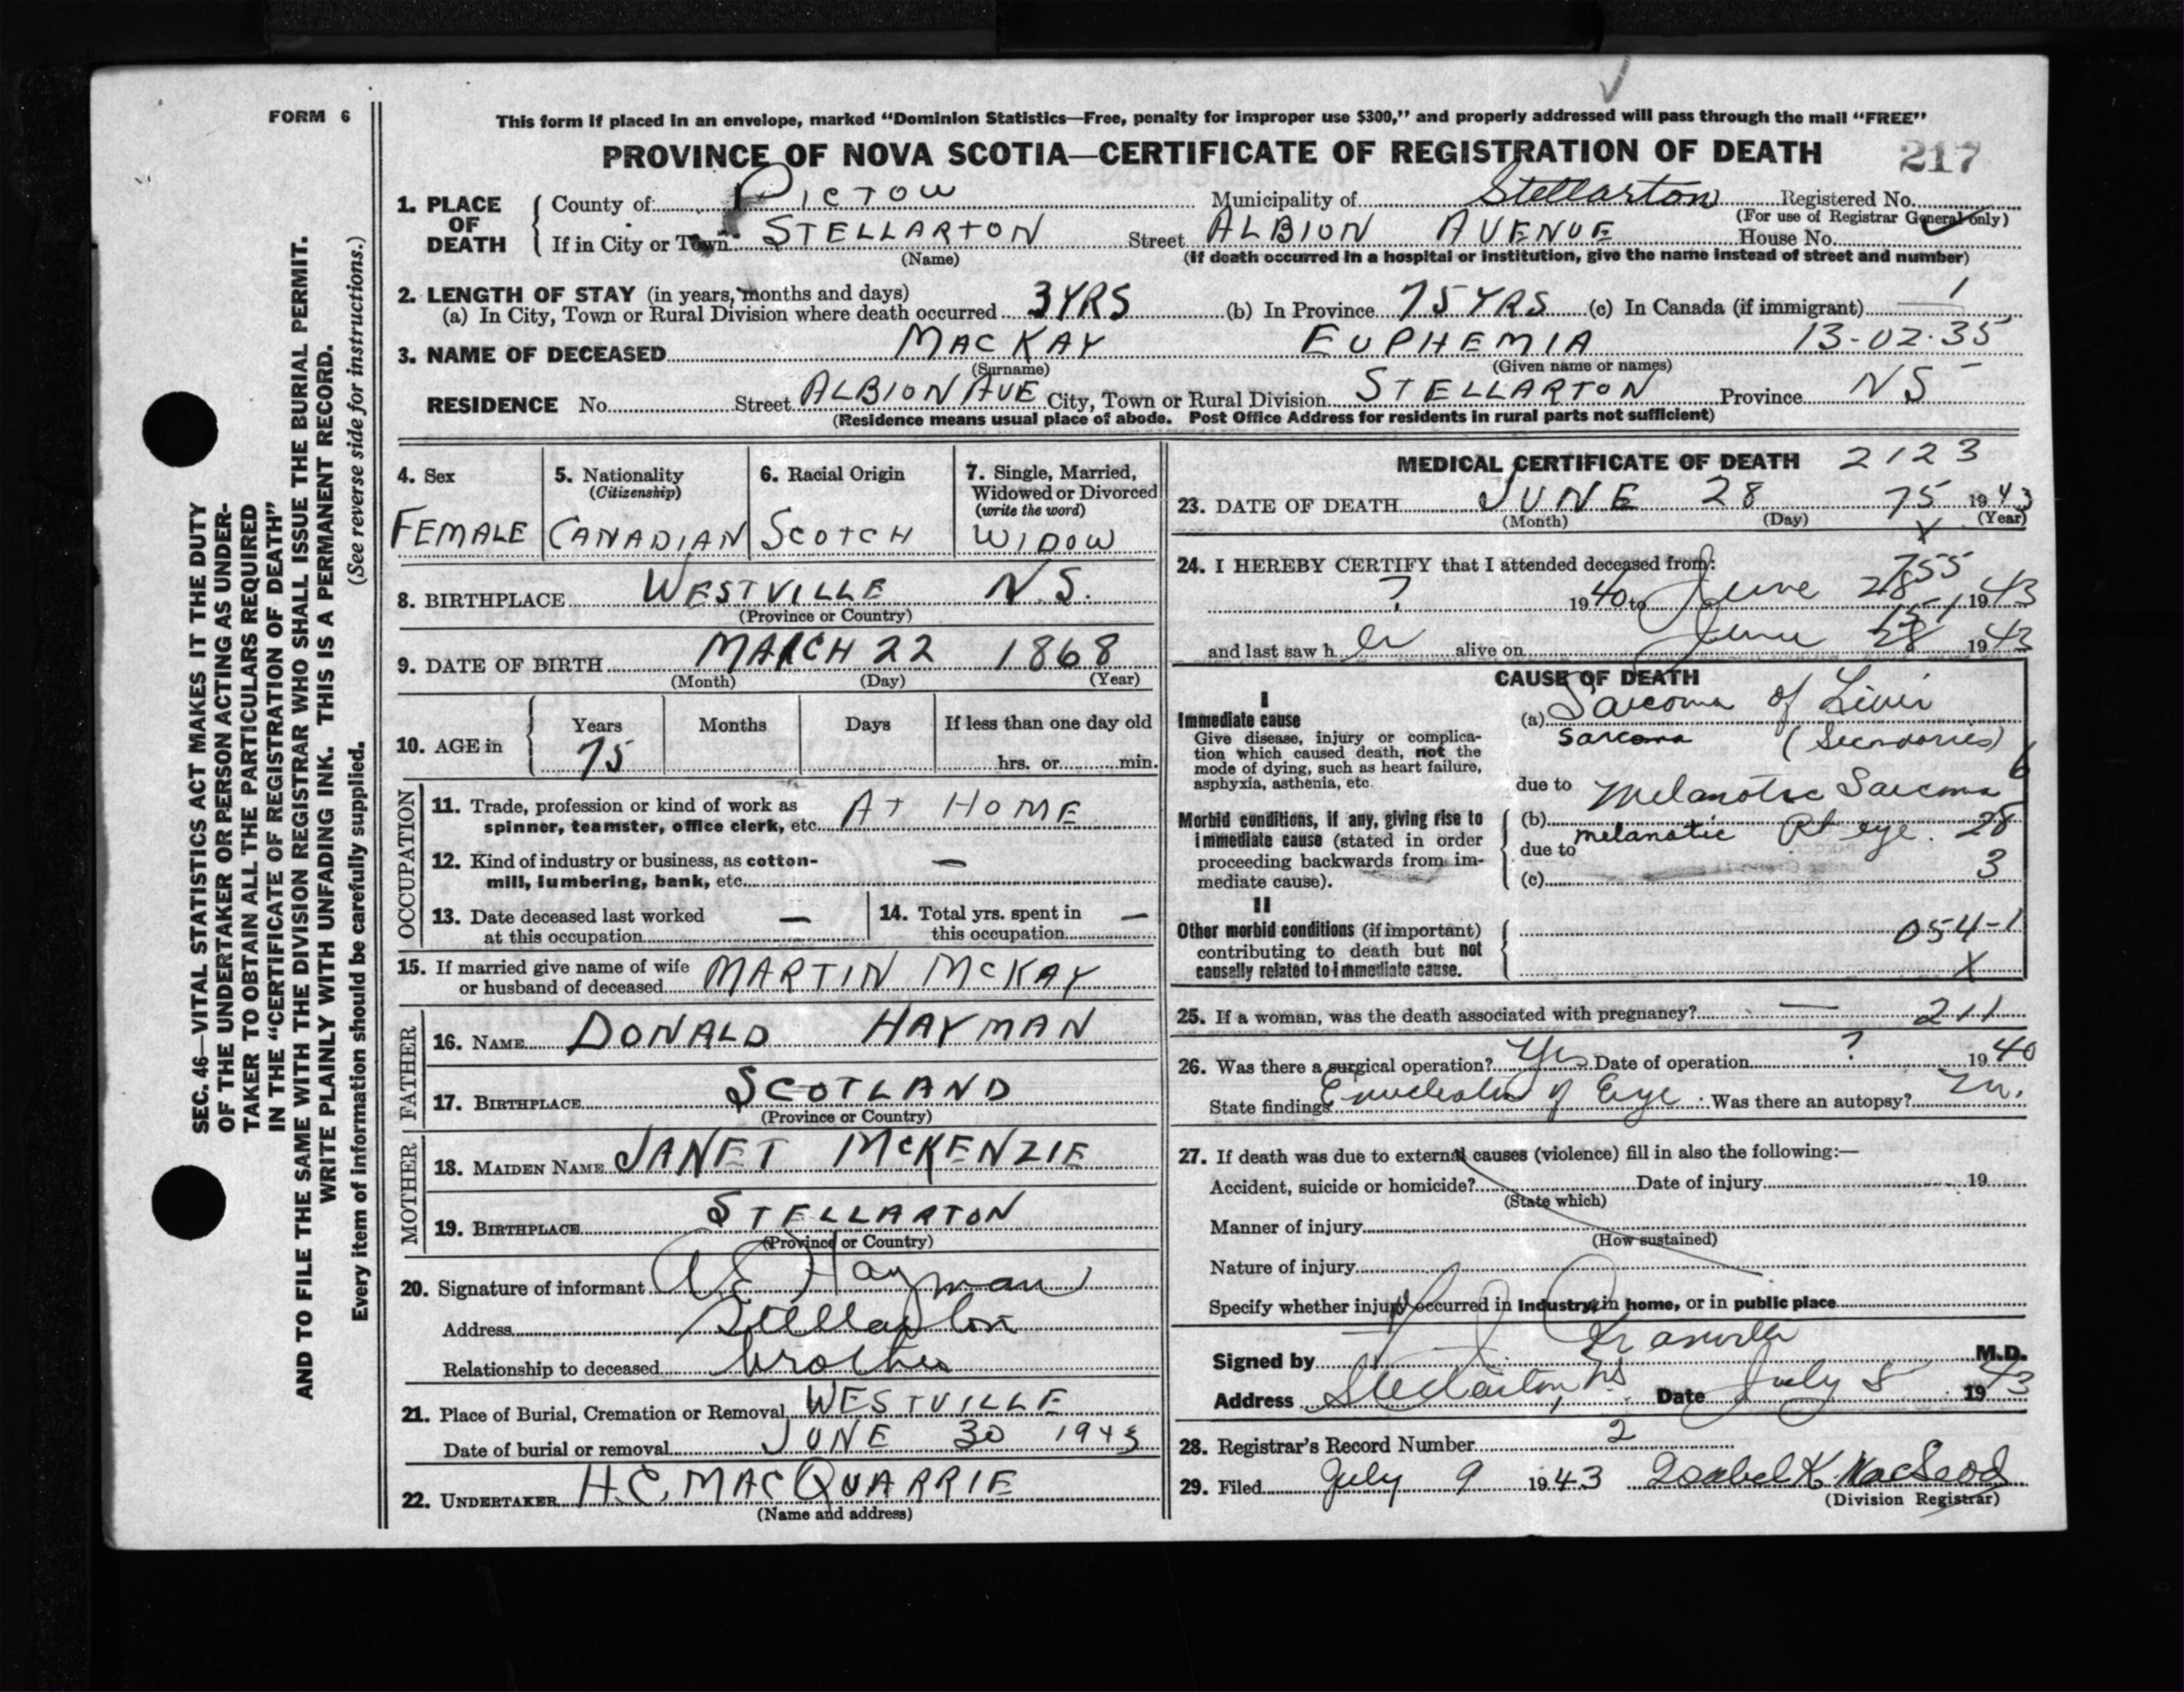 FORM 6
This form if placed in an envelope, marked “Dominion Statistics—Free, penalty for improper use $300,” and properly addressed will pass through the mail “FREE”
PROVINCE OF NOVA SCOTIA—CERTIFICATE OF REGISTRATION OF DEATH 217
SEC. 46—VITAL STATISTICS ACT MAKES IT THE DUTY
OF THE UNDERTAKER OR PERSON ACTING AS UNDER-
TAKER TO OBTAIN ALL THE PARTICULARS REQUIRED
IN THE “CERTIFICATE OF REGISTRATION OF DEATH”
AND TO FILE THE SAME WITH THE DIVISION REGISTRAR WHO SHALL ISSUE THE BURIAL PERMIT.
WRITE PLAINLY WITH UNFADING INK. THIS IS A PERMANENT RECORD.
Every item of information should be carefully supplied. (See reverse side for instructions.)
1. PLACE OF DEATH
County of: PICTOU Municipality of Stellarton Registered No.
(For use of Registrar General only)
If in City or Town STELLARTON Street ALBION AVENUE House No.
(Name) (If death occurred in a hospital or institution, give the name instead of street and number)
2. LENGTH OF STAY (in years, months and days)
(a) In City, Town or Rural Division where death occurred 3 YRS (b) In Province 75 YRS (c) In Canada (if immigrant)
3. NAME OF DECEASED MACKAY EUPHEMIA 13-02-35
(Surname) (Given name or names)
RESIDENCE No. Street ALBION AVE City, Town or Rural Division STELLARTON Province NS
(Residence means usual place of abode. Post Office Address for residents in rural parts not sufficient)
4. Sex
FEMALE
5. Nationality
(Citizenship)
CANADIAN
6. Racial Origin
SCOTCH
7. Single, Married,
Widowed or Divorced
(write the word)
WIDOW
8. BIRTHPLACE WESTVILLE N.S.
(Province or Country)
9. DATE OF BIRTH MARCH 22 1868
(Month) (Day) (Year)
10. AGE in Years Months Days If less than one day old
75 hrs. or min.
OCCUPATION
11. Trade, profession or kind of work as
spinner, teamster, office clerk, etc. AT HOME
12. Kind of industry or business, as cotton-
mill, lumbering, bank, etc. —
13. Date deceased last worked
at this occupation —
14. Total yrs. spent in
this occupation —
15. If married give name of wife
or husband of deceased MARTIN McKAY
FATHER
16. NAME DONALD HAYMAN
17. BIRTHPLACE SCOTLAND
(Province or Country)
MOTHER
18. MAIDEN NAME JANET McKENZIE
19. BIRTHPLACE STELLARTON
(Province or Country)
20. Signature of informant Hayman
Address Stellarton
Relationship to deceased brother
21. Place of Burial, Cremation or Removal WESTVILLE
Date of burial or removal JUNE 30 1943
22. UNDERTAKER H.C. MACQUARRIE
(Name and address)
MEDICAL CERTIFICATE OF DEATH 2123
23. DATE OF DEATH JUNE 28 75 1943
(Month) (Day) (Year)
X
24. I HEREBY CERTIFY that I attended deceased from:
755
? 1940 to June 28 1943
and last saw her alive on June 28 1943
CAUSE OF DEATH
I
Immediate cause
Give disease, injury or complica-
tion which caused death, not the
mode of dying, such as heart failure,
asphyxia, asthenia, etc.
(a) Sarcoma of Liver
Sarcoma (Secondaries)
6
due to Melanotic Sarcoma
Morbid conditions, if any, giving rise to
immediate cause (stated in order
proceeding backwards from im-
mediate cause).
(b) melanotic Rt eye. 28
due to
(c) 3
II
Other morbid conditions (if important)
contributing to death but not
causally related to immediate cause.
054-1
X
25. If a woman, was the death associated with pregnancy? — 211
26. Was there a surgical operation? Yes Date of operation ? 1940
State findings Enucleation of Eye Was there an autopsy?
27. If death was due to external causes (violence) fill in also the following:—
Accident, suicide or homicide? Date of injury 19
(State which)
Manner of injury
(How sustained)
Nature of injury
Specify whether injury occurred in industry, in home, or in public place
Signed by M.D.
Address Stellarton, NS Date July 8 1943
28. Registrar's Record Number 2
29. Filed July 9 1943 Isabel K. MacLeod
(Division Registrar)